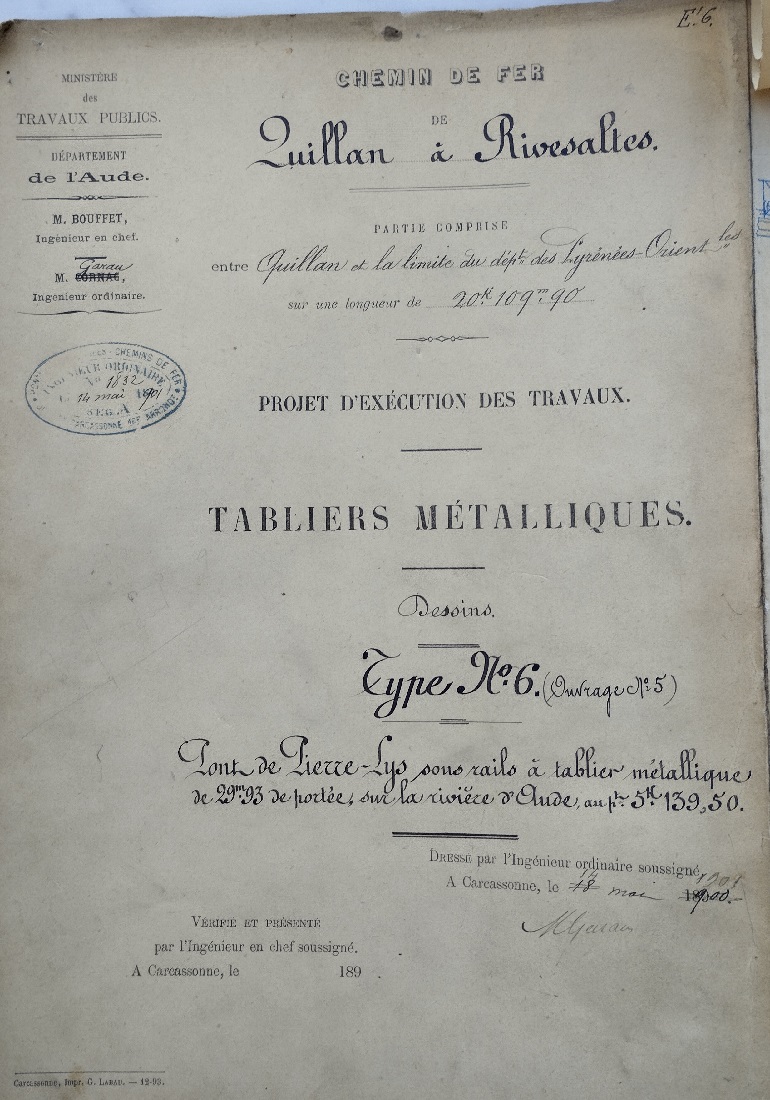 Eᵗ 6.
MINISTÈRE
des
TRAVAUX PUBLICS.
DÉPARTEMENT
de l'Aude.
M. BOUFFET,
Ingénieur en chef.
Garau
M. CORNAC,
Ingenieur ordinaire.
CHEMINS DE FER
INGÉNIEUR ORDINAIRE
No 1832
14 mai 1901
CARCASSONNE
CHEMIN DE FER
DE
Quillan à Rivesaltes.
PARTIE COMPRISE
entre Quillan et la limite du dépᵗ des Pyrénées-Orientˡᵉˢ
sur une longueur de 20ᵏ 109ᵐ 90
PROJET D'EXÉCUTION DES TRAVAUX.
TABLIERS MÉTALLIQUES.
Dessins.
Type Nº 6. (Ouvrage Nº 5)
Pont de Pierre-Lys sous rails à tablier métallique
de 29ᵐ.93 de portée, sur la rivière d'Aude, au pᵗ 5ᴷ 139,50.
DRESSÉ par l'Ingénieur ordinaire soussigné,
A Carcassonne, le 18 14 mai 1900. 1901
MGarau
VÉRIFIÉ ET PRÉSENTÉ
par l'Ingénieur en chef soussigné.
A Carcassonne, le 189 .
Carcassonne, Impr. G. LABAU. — 12-98.